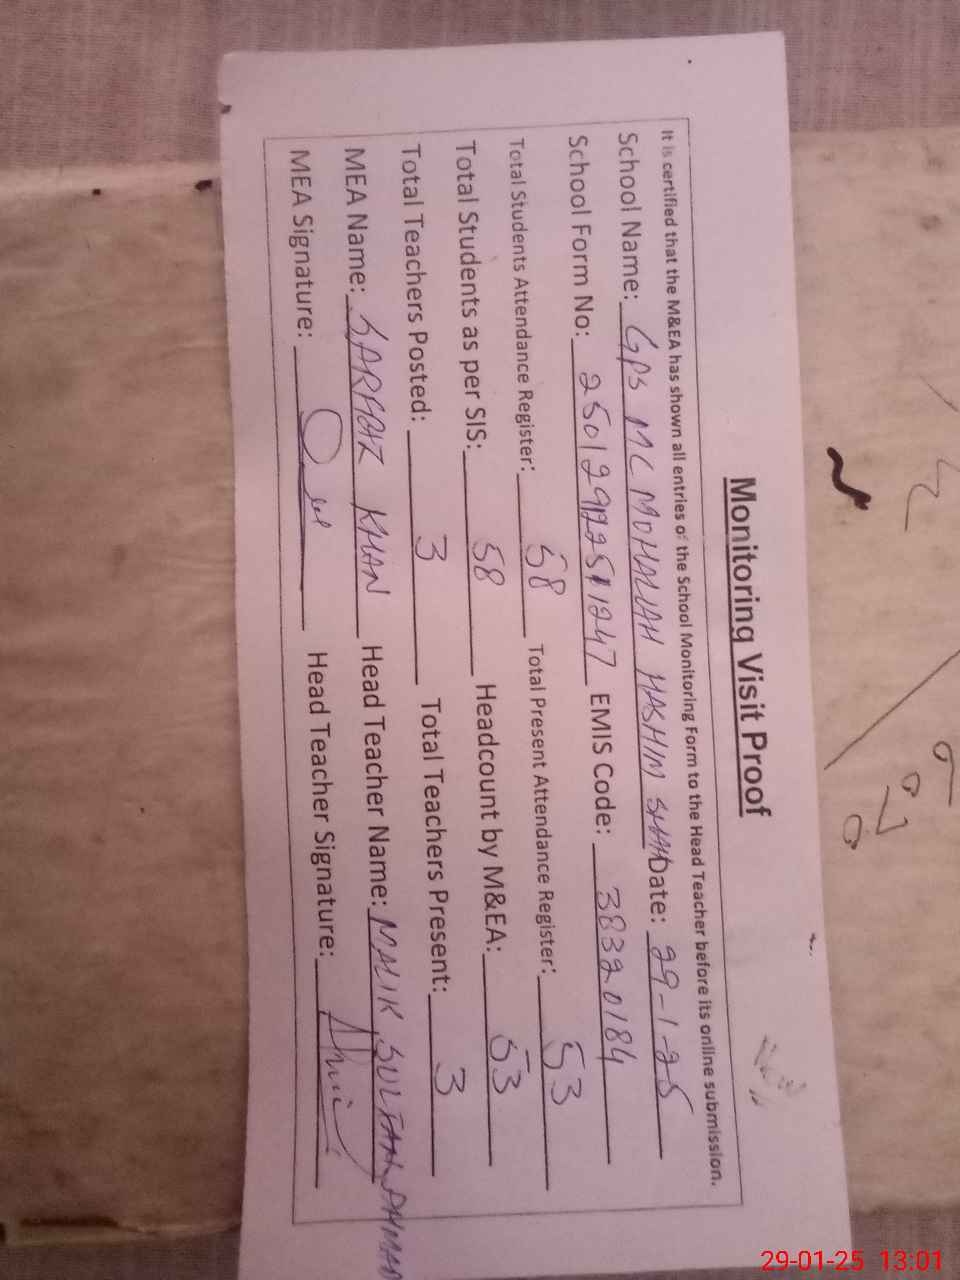 Monitoring Visit Proof
It is certified that the M&EA has shown all entries of the School Monitoring Form to the Head Teacher before its online submission.
School Name: GPS MC MOHALLAH HASHIM SHAH Date: 29-1-25
School Form No: EMIS Code: 38320184
Total Students Attendance Register: 58 Total Present Attendance Register: 53
Total Students as per SIS: 58 Headcount by M&EA: 53
Total Teachers Posted: 3 Total Teachers Present: 3
MEA Name: KHAN Head Teacher Name: MALIK SULTAN AHMAD
MEA Signature: Head Teacher Signature:
29-01-25 13:01